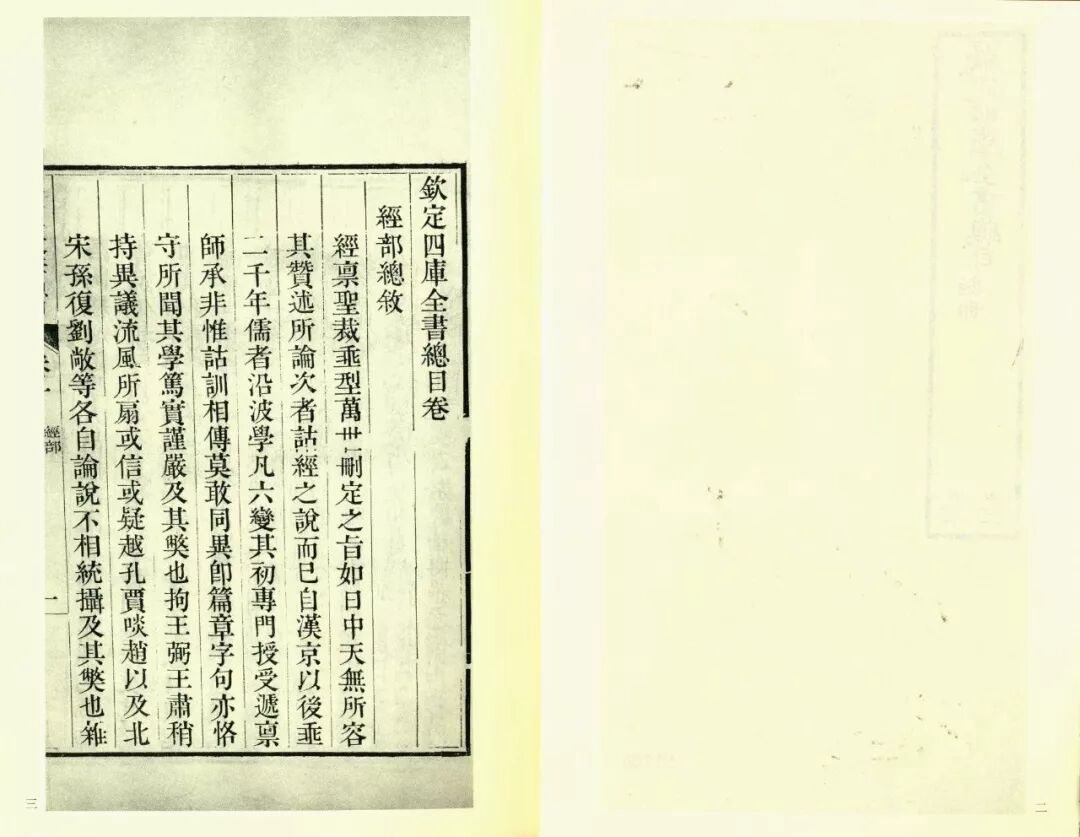 欽定四庫全書總目卷
經部總敘
經稟聖裁垂型萬世刪定之旨如日中天無所容
其贊述所論次者詁經之說而已自漢京以後垂
二千年儒者沿波學凡六變其初專門授受遞稟
師承非惟詁訓相傳莫敢同異卽篇章字句亦恪
守所聞其學篤實謹嚴及其弊也拘王弼王肅稍
持異議流風所扇或信或疑越孔賈啖趙以及北
宋孫復劉敞等各自論說不相統攝及其弊也雜
經部
一
三
二